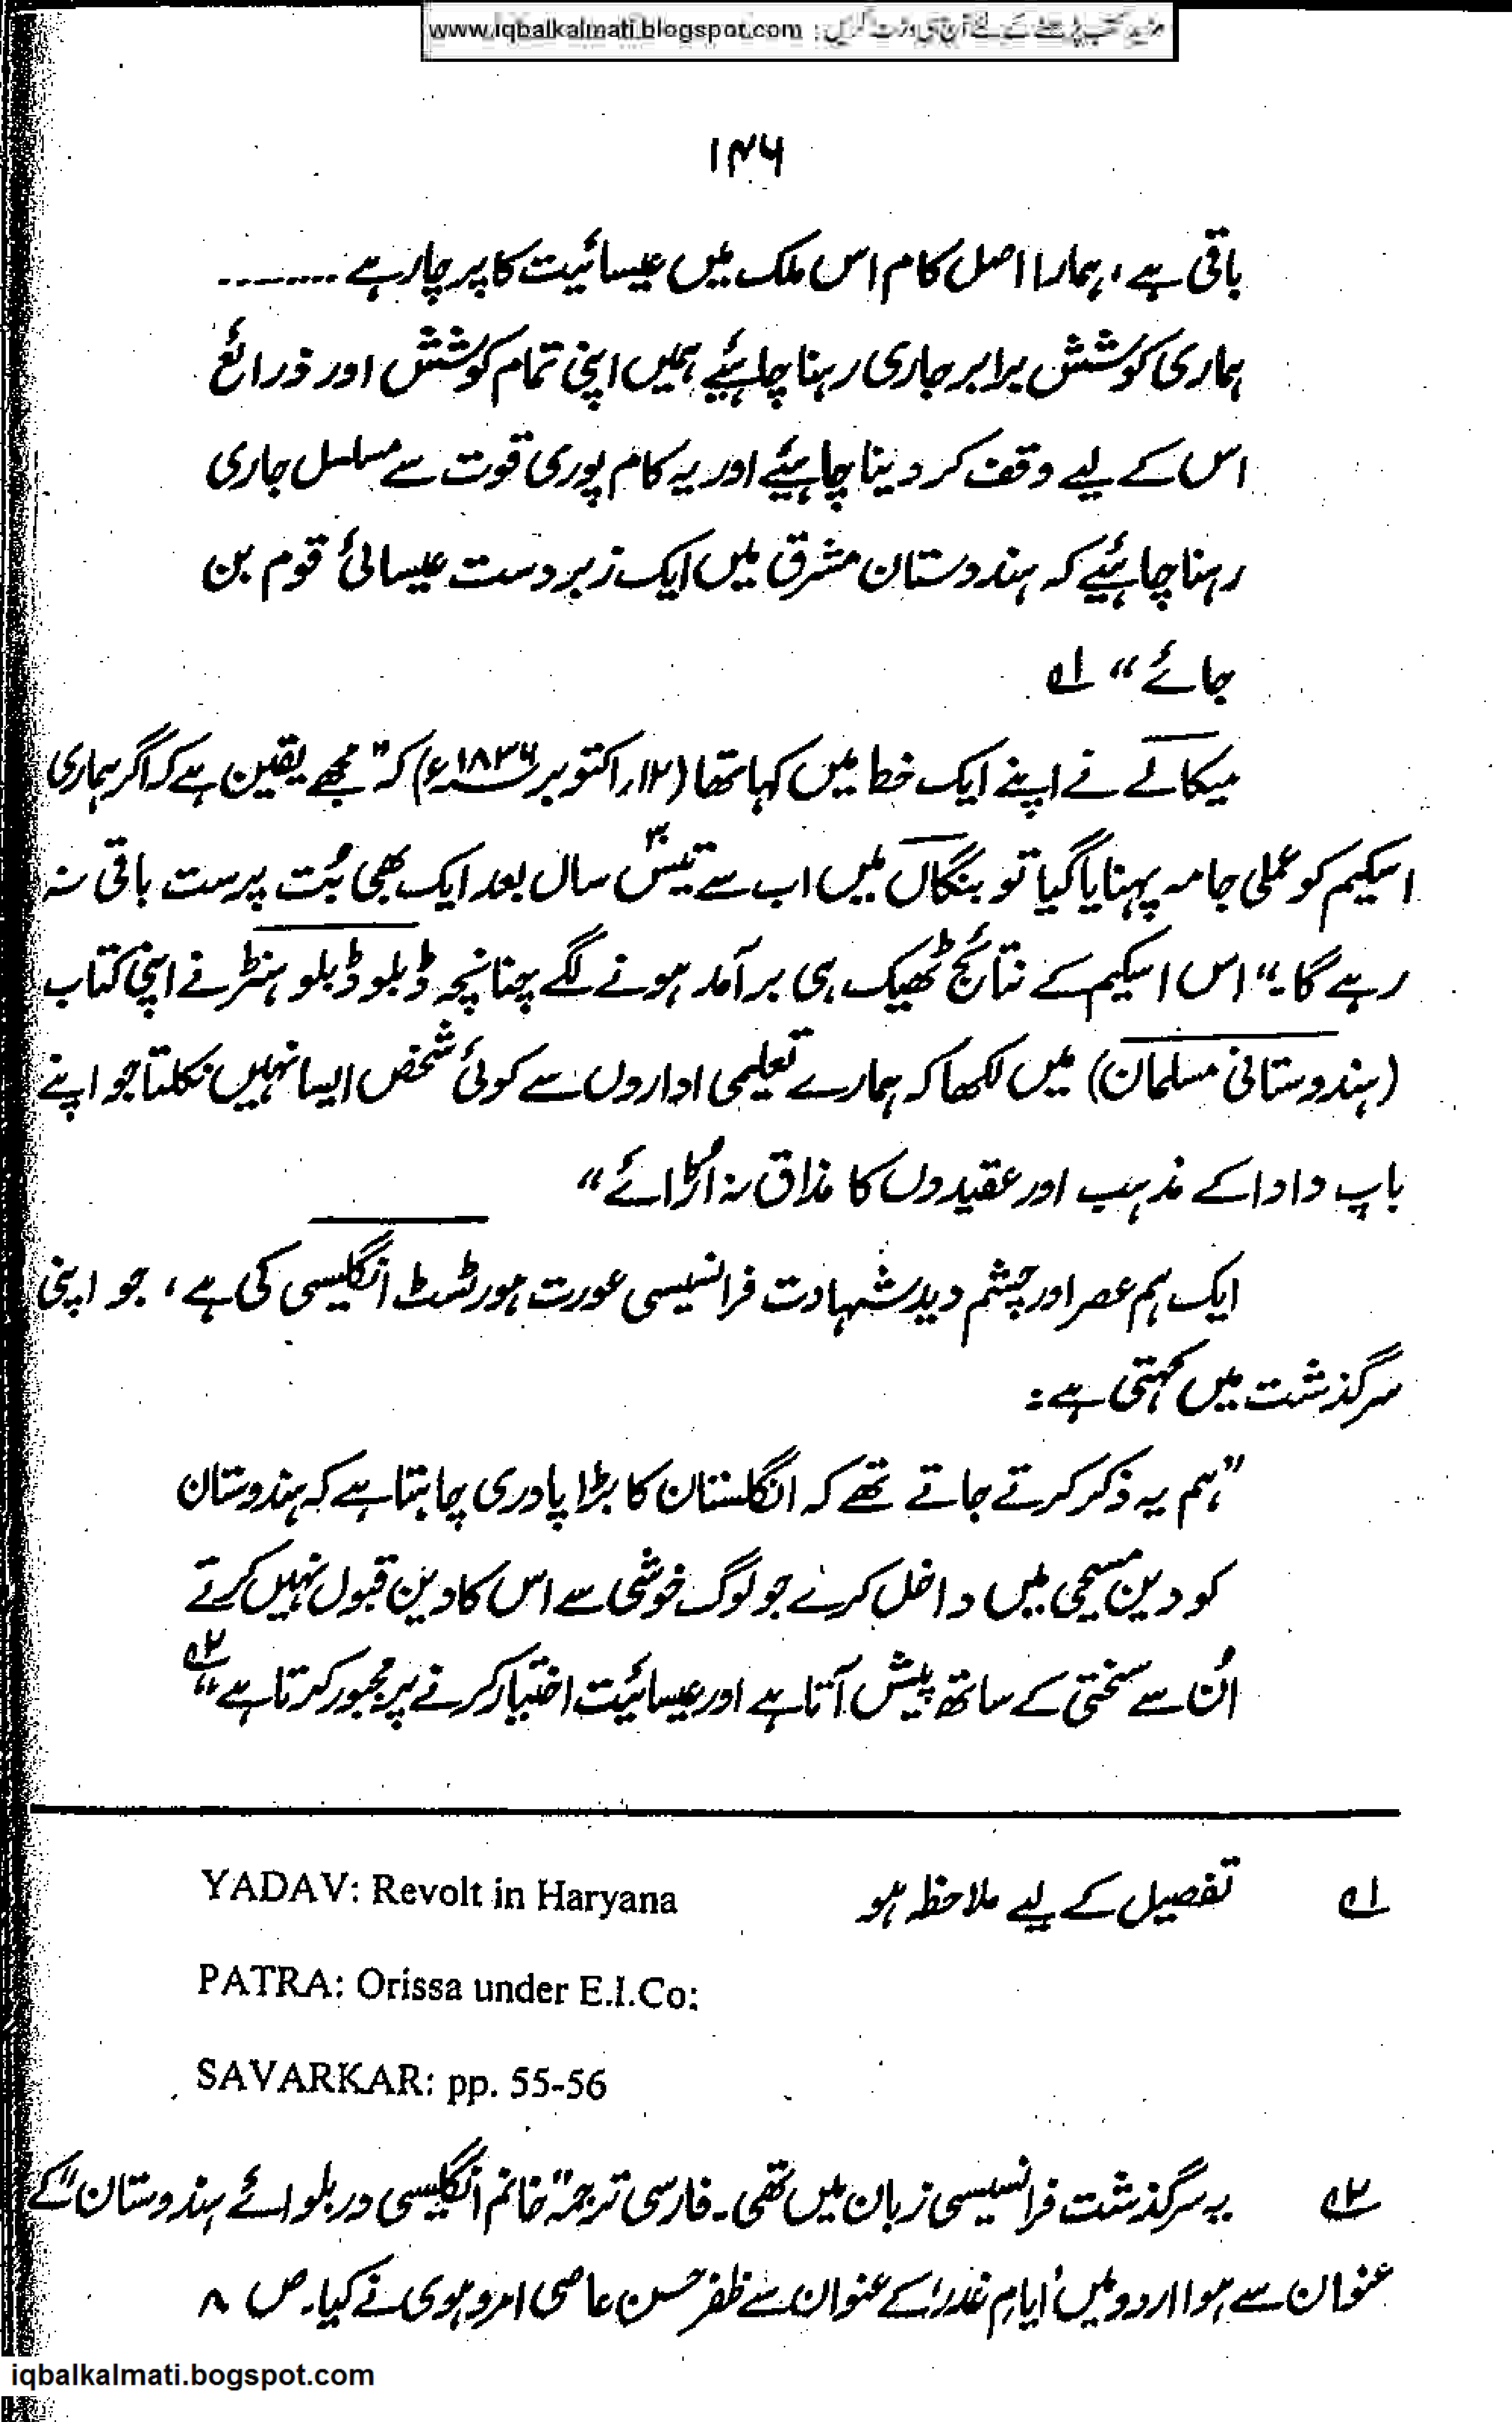 www.iqbalkalmati.blogspot.com : مزید کتب پڑھنے کے لئے آج ہی وزٹ کریں
۱۴۶
باقی ہے، ہمارا اصل کام اس ملک میں عیسائیت کا پرچار ہے ........
ہماری کوشش برابر جاری رہنا چاہئیے ہمیں اپنی تمام کوشش اور ذرائع
اس کے لیے وقف کر دینا چاہئیے اور یہ کام پوری قوت سے مسلسل جاری
رہنا چاہئیے کہ ہندوستان مشرق میں ایک زبردست عیسائی قوم بن
جائے“ ۱ھ
میکالے نے اپنے ایک خط میں کہا تھا (۱۲؍اکتوبر ۱۸۳۶ء) کہ ”مجھے یقین ہے کہ اگر ہماری
اسکیم کو عملی جامہ پہنایا گیا تو بنگال میں اب سے تیس۳۰ سال بعد ایک بھی بُت پرست باقی نہ
رہے گا۔“ اس اسکیم کے نتائج ٹھیک ہی برآمد ہونے لگے چنانچہ ڈبلو ڈبلو ہنٹر نے اپنی کتاب
(ہندوستانی مسلمان) میں لکھا کہ ہمارے تعلیمی اداروں سے کوئی شخص ایسا نہیں نکلتا جو اپنے
باپ دادا کے مذہب اور عقیدوں کا مذاق نہ اُڑائے“
ایک ہم عصر اور چشم دید شہادت فرانسیسی عورت ہورٹسٹ انگلیسی کی ہے، جو اپنی
سرگذشت میں کہتی ہے:
”ہم یہ ذکر کرتے جاتے تھے کہ انگلستان کا بڑا پادری چاہتا ہے کہ ہندوستان
کو دین مسیحی میں داخل کرے جو لوگ خوشی سے اس کا دین قبول نہیں کرتے
اُن سے سختی کے ساتھ پیش آتا ہے اور عیسائیت اختیار کرنے پر مجبور کرتا ہے“ ۲ھ
۱ھ تفصیل کے لیے ملاحظہ ہو YADAV: Revolt in Haryana
PATRA: Orissa under E.I.Co:
SAVARKAR: pp. 55-56
۲ھ یہ سرگذشت فرانسیسی زبان میں تھی۔ فارسی ترجمہ ”خانم انگلیسی در بلوائے ہندوستان“ کے
عنوان سے ہوا اردو میں ’ایام غدر‘ کے عنوان سے ظفر حسن عاصی امروہوی نے کیا۔ ص ۸
iqbalkalmati.bogspot.com